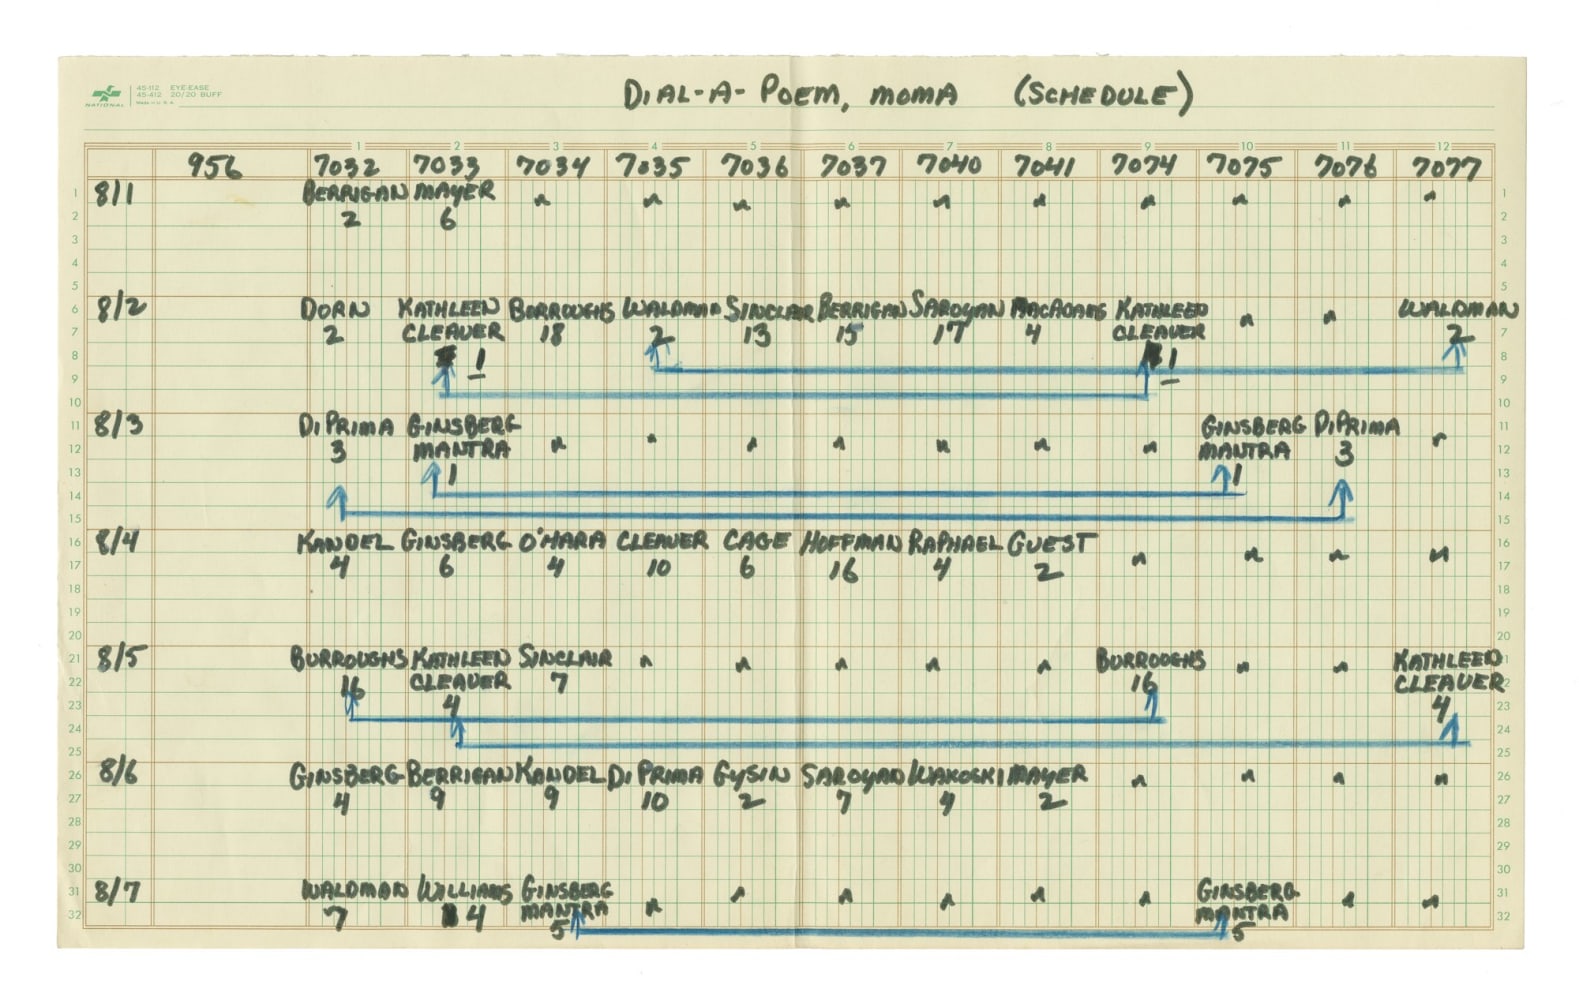 NATIONAL
45-112 EYE-EASE
45-412 20/20 BUFF
Made in U.S.A.
DIAL-A-POEM, MOMA (SCHEDULE)
1 2 3 4 5 6 7 8 9 10 11 12
956 7032 7033 7034 7035 7036 7037 7040 7041 7074 7075 7076 7077
8/1 BERRIGAN MAYER
2 6
8/2 DORN KATHLEEN BURROUGHS WALDMAN SINCLAIR BERRIGAN SAROYAN MACADAMS KATHLEEN WALDMAN
2 CLEAVER 18 2 13 15 17 4 CLEAVER 2
1 1
8/3 DIPRIMA GINSBERG GINSBERG DIPRIMA
3 MANTRA MANTRA 3
1 1
8/4 KANDEL GINSBERG O'HARA CLEAVER CAGE HOFFMAN RAPHAEL GUEST
4 6 4 10 6 16 4 2
8/5 BURROUGHS KATHLEEN SINCLAIR BURROUGHS KATHLEEN
16 CLEAVER 7 16 CLEAVER
4 4
8/6 GINSBERG BERRIGAN KANDEL DI PRIMA GYSIN SAROYAN WAKOSKI MAYER
4 9 9 10 2 7 4 2
8/7 WALDMAN WILLIAMS GINSBERG GINSBERG
7 4 MANTRA MANTRA
5 5